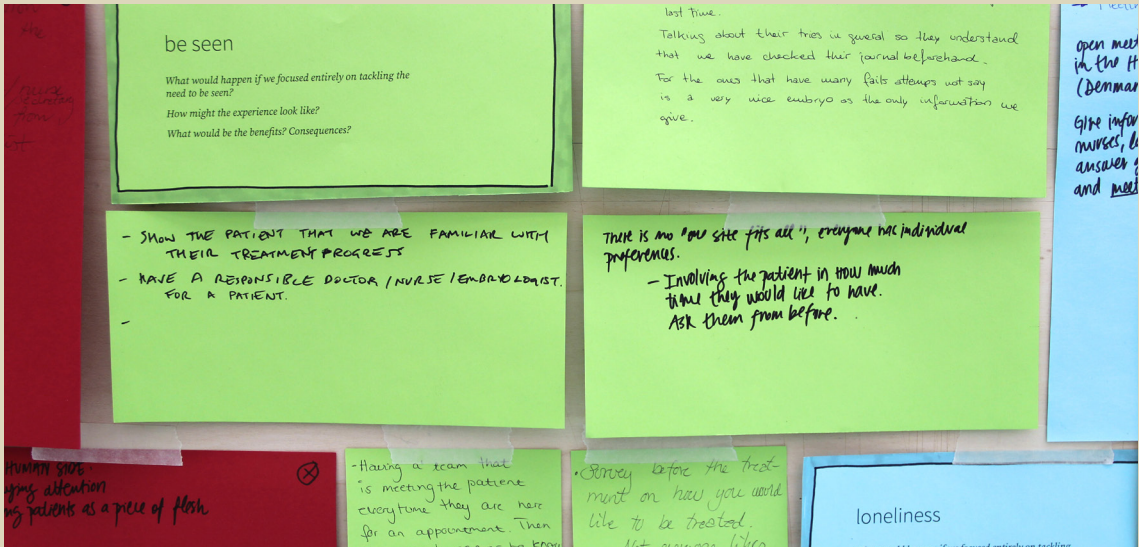 be seen
What would happen if we focused entirely on tackling the
need to be seen?
How might the experience look like?
What would be the benefits? Consequences?
last time.
Talking about their tries in general so they understand
that we have checked their journal beforehand.
For the ones that have many fails attemps not say
is a very nice embryo as the only information we
give.
open meet
in the H
(Denmar
Give infor
nurses,
answer
and meet
- SHOW THE PATIENT THAT WE ARE FAMILIAR WITH
THEIR TREATMENT PROGRESS
- HAVE A RESPONSIBLE DOCTOR/NURSE/EMBRYOLOGIST.
FOR A PATIENT.
-
There is no "one site fits all", everyone has individual
preferences.
- Involving the patient in how much
time they would like to have.
Ask them from before.
HUMAN SIDE.
ying attention
ng patients as a piece of flesh
- Having a team that
is meeting the patient
everytime they are here
for an appointment. Then
• Survey before the treat-
ment on how you would
like to be treated.
Not everyone likes
loneliness